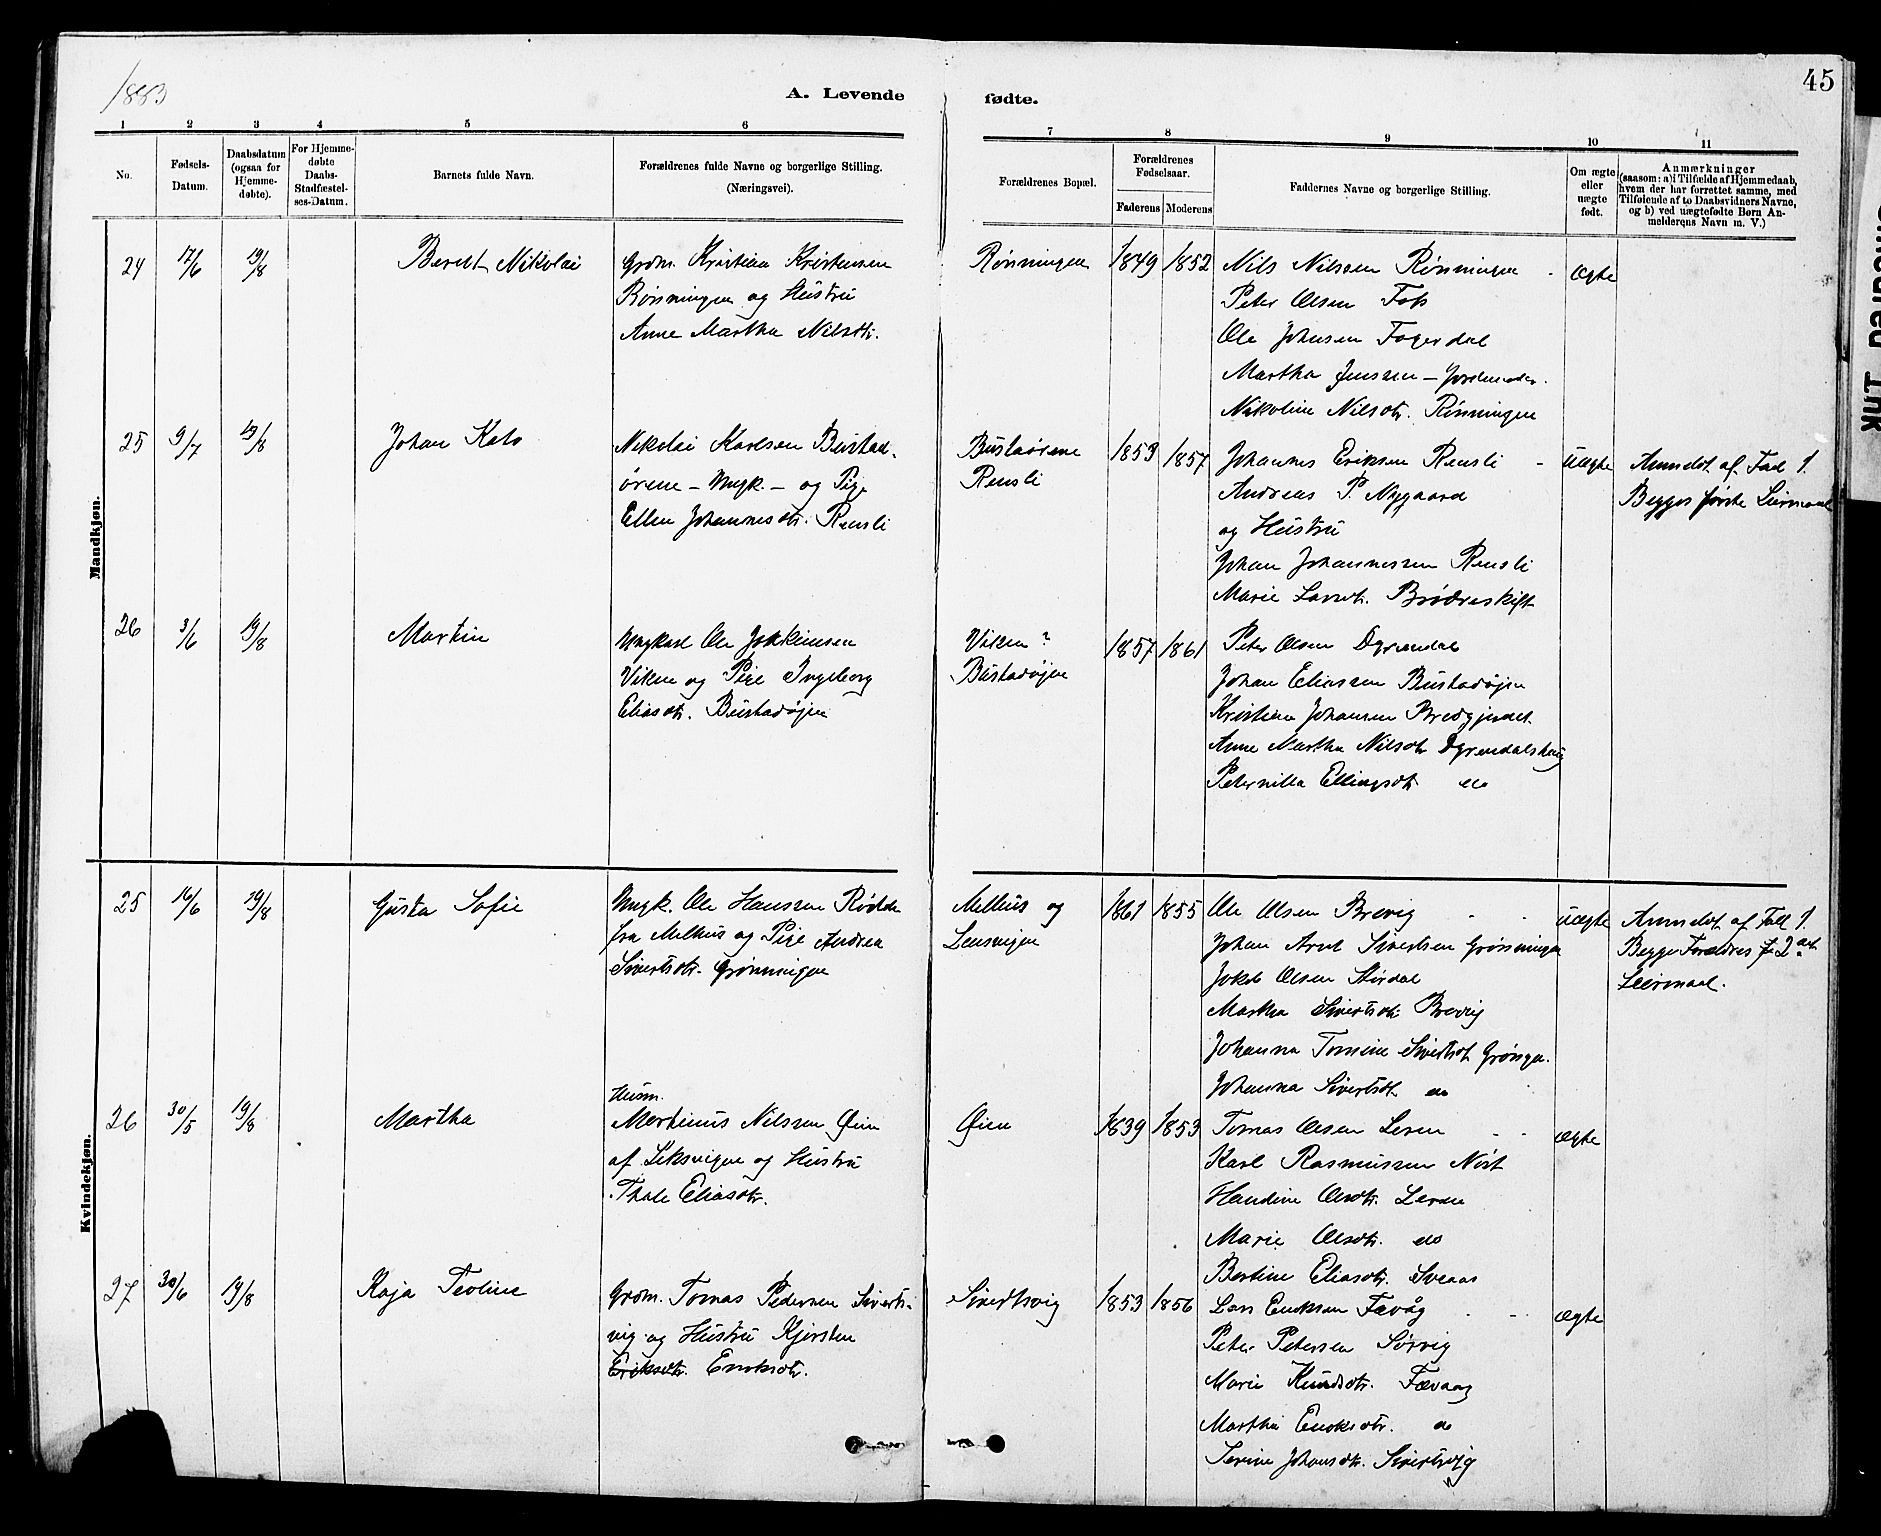 1883
A. Levende fødte.
45
1 2 3 4 5 6 7 8 9 10 11
No.
Fødsels-Datum.
Daabsdatum (ogsaa for Hjemme-døbte).
For Hjemme-døbte Daabs-Stadfæstel-ses-Datum.
Barnets fulde Navn.
Forældrenes fulde Navne og borgerlige Stilling.
(Næringsvei).
Forældrenes Bopæl.
Forældrenes Fødselsaar.
Faderens Moderens
Faddernes Navne og borgerlige Stilling.
Om ægte eller uægte født.
Anmærkninger
(saasom: a) i Tilfælde af Hjemmedaab, hvem der har forrettet samme, med Tilføiende af to Daabsvidners Navne, og b) ved uægtefødte Børn An-melderens Navn m. V.)
Mandkjøn.
24 17/6 19/8 Berent Nikolai
Grdm. Kristian Kristensen
Rønningen og Hustru
Anne Martha Nilsdtr.
Rønningen 1849 1852
Nils Nilssen Rønningen
Peter Olsen Foss
Ole Johnsen Fagerdal
Martha Jenssen – Jordemoder.
Nikoline Nilsdtr. Rønningen
Ægte
25 9/7 19/8 Johan Kalo
Nikolai Karlsen Bustad-
ørene – Ungk. – og Pige
Ellen Johannesdtr. Rensli
Bustaørene
Rensli
1853 1857
Johannes Eriksen Rensli
Andreas P. Nygaard
og Hustru
Johan Johannessen Rensli
Marie Larsdt. Brødreskift
Uægte
Anmeldt af Fad 1.
Begges første Leirmaal
26 3/6 19/8 Martin
Ungkarl Ole Jokkimsen
Viken og Pige Ingeborg
Eliasdtr. Bustadøjen
Viken ?
Bustadøjen
1857 1861
Peter Olsen Dyrendal
Johan Eliassen Bustadøjen
Kristian Johansen Bredgjerdet
Anne Martha Nilsdtr Dyrendalshaug
Peternilla Ellingsdt do
Kvindekjøn.
25 16/6 19/8 Gusta Sofie
Ungk. Ole Hanssen Rødde
fra Melhus og Pige Andrea
Sivertsdtr. Grønningen
Melhus og
Lensvigen
1861 1855
Ole Olsen Brevig
Johan Arnt Sivertsen Grønningen
Jokob Olsen Størdal
Martha Sivertsdtr. Brevig
Johanna Tomine Sivertsdt Grøngen.
Johanna Sivertsdt do
uægte
Anmeldt af Fad 1.
Begge Forældres 2det
Leirmaal.
26 30/5 19/8 Martha
Husm.
Martinus Nilssen Øien
af Leksvigen og Hustru
Thale Eliasdtr.
Øien 1839 1853
Tomas Olsen Leren
Karl Rasmussen Nøst
Handine Olsdtr. Leren
Marie Olsdtr. do
Bertine Eliasdtr. Sveaas
ægte
27 30/6 19/8 Kaja Teoline
Grdm. Tomas Pedersen Siverts-
vig og Hustru Kjersten
Eriksdtr. Enoksdtr.
Sivertsvig 1853 1856
Lars Enoksen Fævåg
Peter Petersen Sørvig
Marie Knudsdtr. Fævaag
Martha Enoksdtr. do
Serine Johansdtr. Sivertsvig
ægte